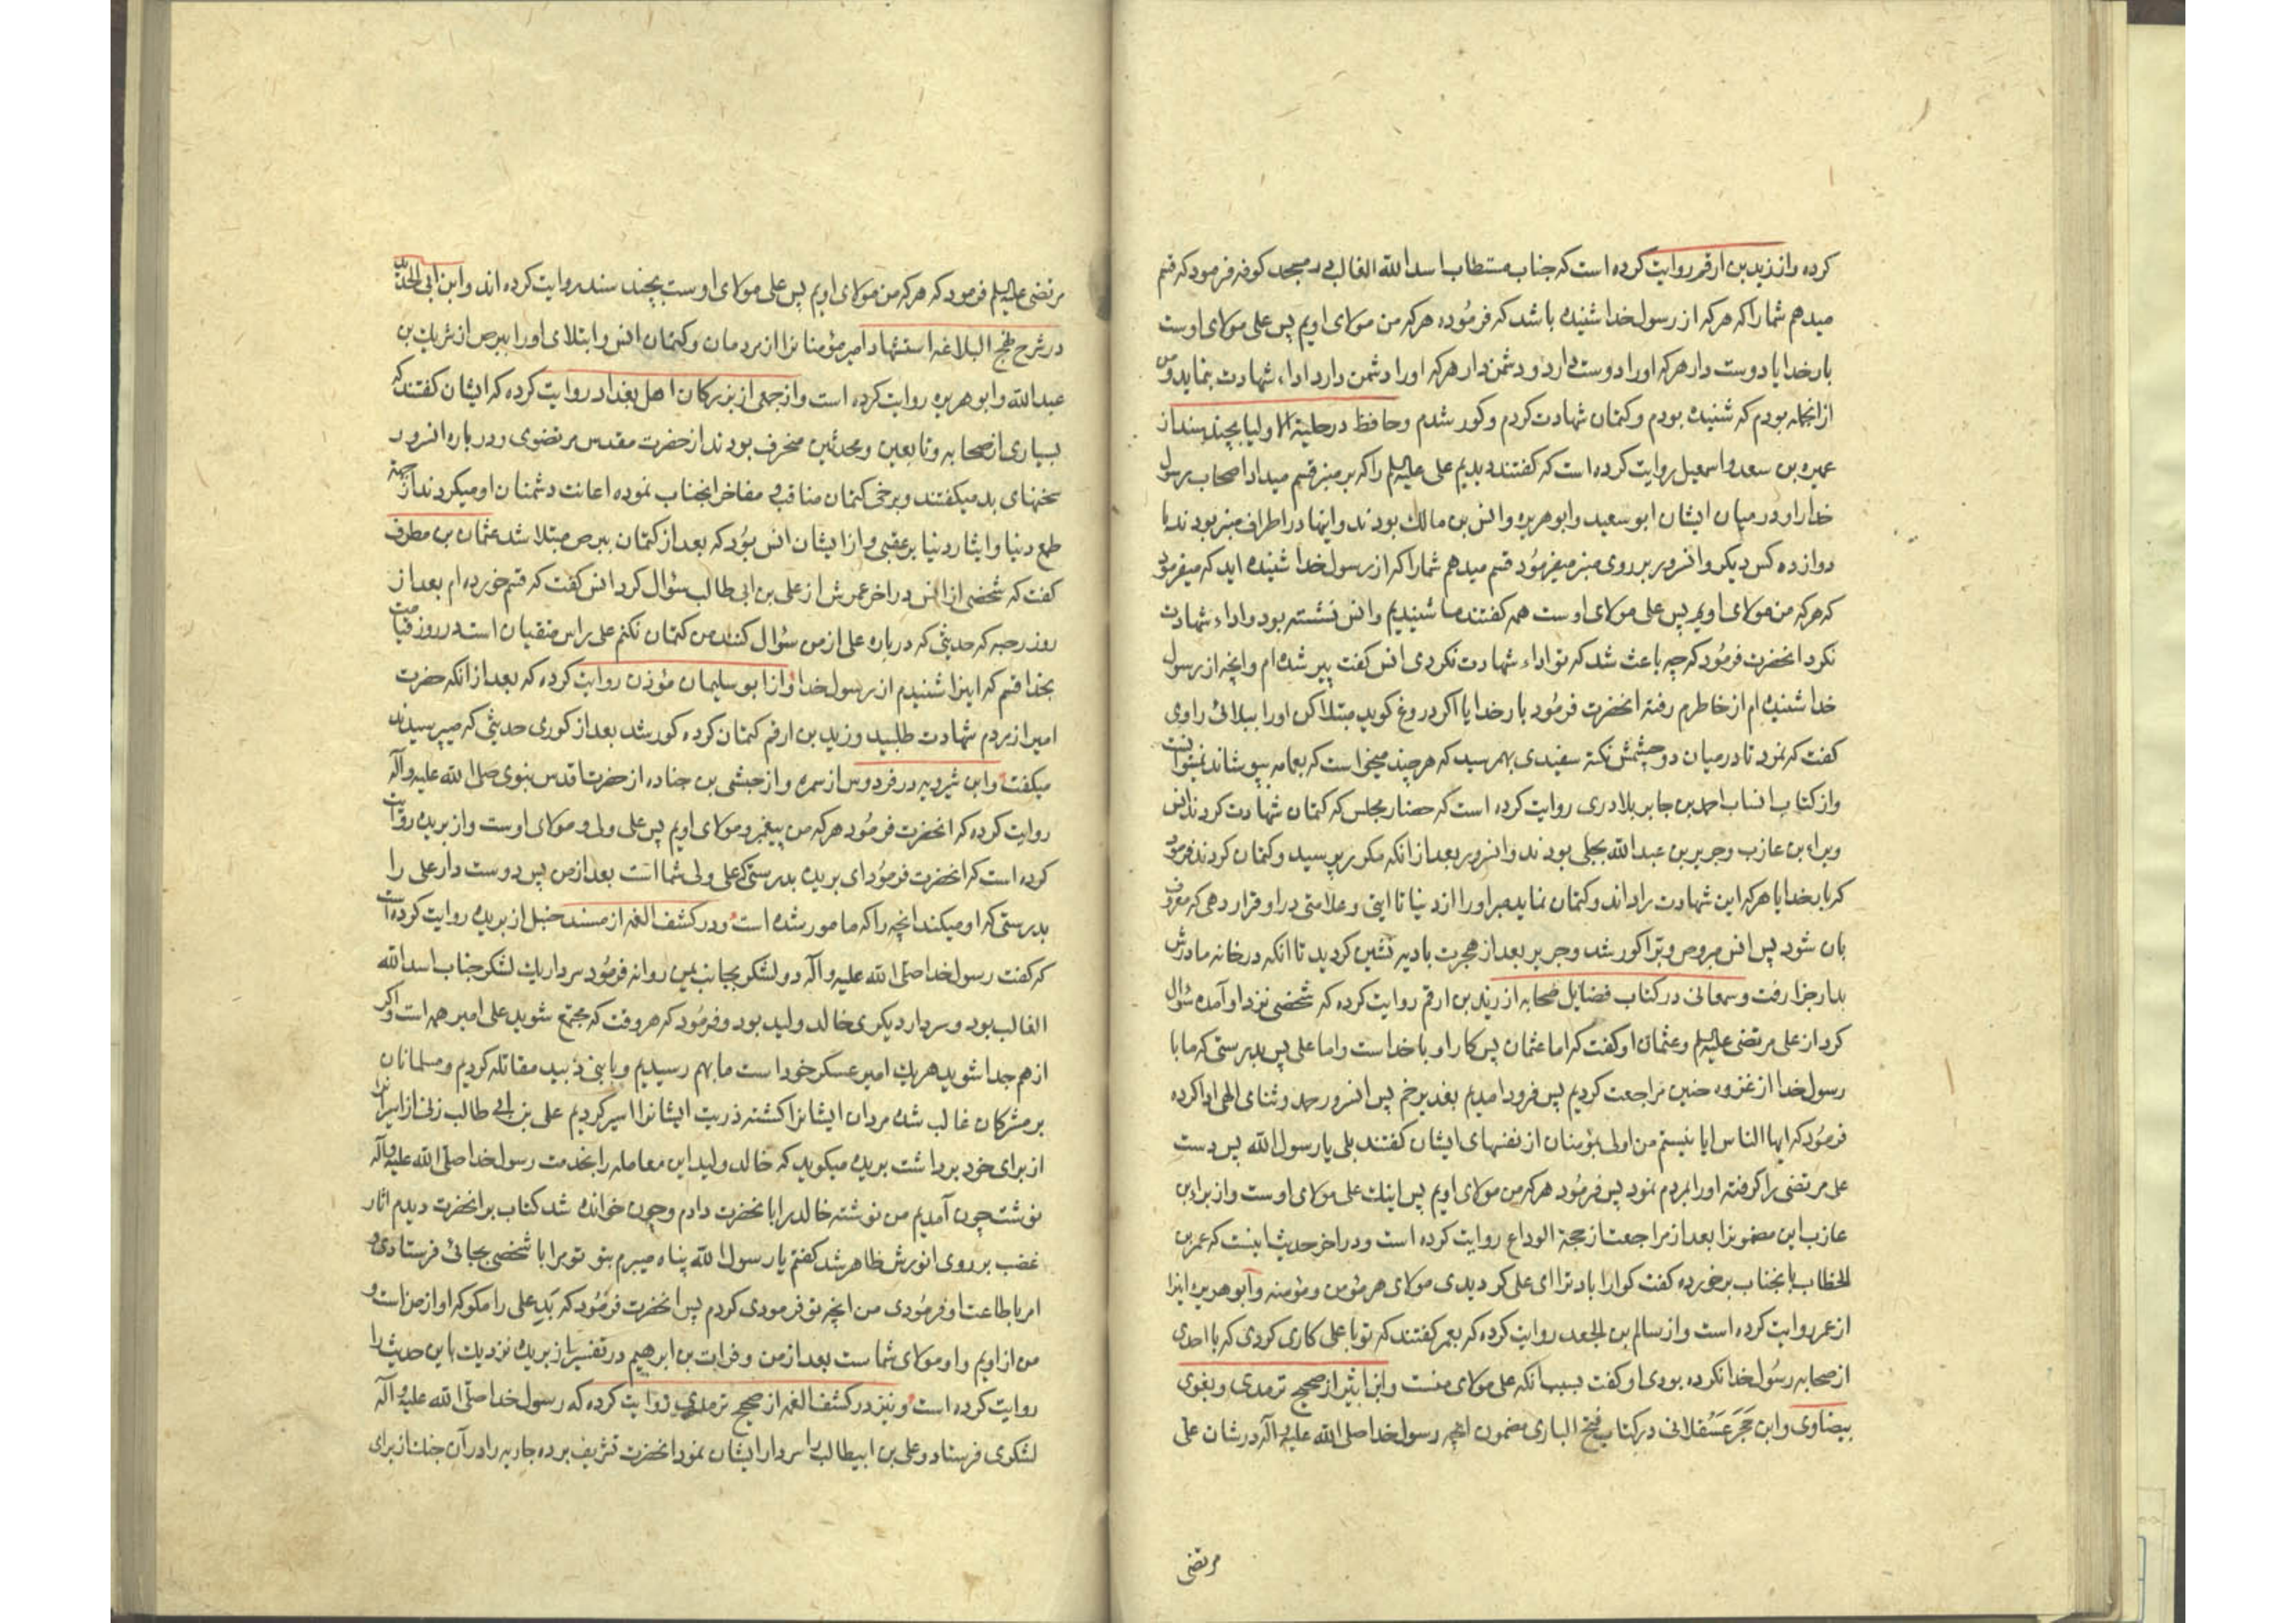 کرده و از زید بن ارقم روایت کرده است که جناب مستطاب اسد الله الغالب در مسجد کوفه فرمود که قسم
میدهم شما را که هر که از رسول خدا شنیده باشد که فرموده هر که من مولای اویم پس علی مولای اوست
بار خدایا دوست دار هر که او را دوست دارد و دشمن دار هر که او را دشمن دارد اداء شهادت بنماید و من
از انجمله بودم که شنیده بودم و کتمان شهادت کردم و کور شدم و حافظ در حلیة الاولیا بچند سند از
عمیره بن سعد و اسمعیل روایت کرده است که گفتند دیدیم علی علیه السلم را که بر منبر قسم میداد اصحاب رسول
خدا را و در میان ایشان ابو سعید و ابو هریره و انس بن مالک بودند و اینها در اطراف منبر بودند با
دوازده کس دیگر و انسرور بر روی منبر میفرمود قسم میدهم شما را که از رسول خدا شنیده اید که میفرمود
که هر که من مولای اویم پس علی مولای اوست همه گفتند ما شنیدیم و انس نشسته بود و اداء شهادت
نکرد انحضرت فرمود که چه باعث شد که تو اداء شهادت نکردی انس گفت پیر شده ام و انچه از رسول
خدا شنیده ام از خاطرم رفته انحضرت فرمود بار خدایا اکر دروغ گوید مبتلا کن او را ببلائی راوی
گفت که نمرد تا در میان دو چشمش نکتۀ سفیدی بهم رسید که هر چند میخواست که بعمامه بپوشاند نمیتوانست
و از کتاب انساب احمد بن جابر بلادری روایت کرده است که حضار مجلس که کتمان شهادت کردند انس
و براء بن عازب و جریر بن عبد الله بجلی بودند و انسرور بعد از انکه مکرر پرسید و کتمان کردند فرمود
که بار خدایا هر که این شهادت را داند و کتمان نماید مبر او را از دنیا تا ایتی و علامتی در او قرار دهی که معروف
بان شود پس انس مبروص و برا کور شد و جریر بعد از هجرت بادیه نشین کردید تا انکه در خانه مادرش
بدار جزا رفت و سمعانی در کتاب فضایل صحابه از زید بن ارقم روایت کرده که شخصی نزد او آمده سئوال
کرد از علی مرتضی علیه السلم و عثمان او گفت که اما عثمان پس کار او با خداست و اما علی پس بدرستی که ما با
رسول خدا از غزوه حنین مراجعت کردیم پس فرود امدیم بغدیر خم پس انسرور حمد و ثنای الهی ادا کرده
فرمود که ایها الناس ایا نیستم من اولی بمؤمنان از نفسهای ایشان گفتند بلی یا رسول الله پس دست
علی مرتضی را گرفته او را بمردم نمود پس فرمود هر که من مولای اویم پس اینک علی مولای اوست و از براء بن
عازب این مضمونرا بعد از مراجعت از حجة الوداع روایت کرده است و در اخر حدیث اینست که عمر بن
الخطاب بانجناب برخورده گفت گوارا باد ترا ای علی کردیدی مولای هر مؤمن و مؤمنه و ابو هریره اینرا
از عمر روایت کرده است و از سالم بن الجعد روایت کرده که بعمر گفتند که تو با علی کاری کردی که با احدی
از صحابه رسول خدا نکرده بودی او گفت بسبب انکه علی مولای منست و ابن اثیر از صحیح ترمدی و بغوی
بیضاوی و ابن حجر عسقلانی در کتاب فتح الباری مضمون انچه رسول خدا صلی الله علیه و اله در شان علی
مرتضی
مرتضی علیه السلم فرمود که هر که من مولای اویم پس علی مولای اوست بچند سند روایت کرده اند و ابن ابی الحدید
در شرح نهج البلاغه استشهاد امیر مؤمنانرا از مردمان و کتمان انس و ابتلای او را ببرص از شریک بن
عبد الله و ابو هریره روایت کرده است و از جمعی از بزرکان اهل بغداد روایت کرده که ایشان گفتند که
بسیاری از صحابه و تابعین و محدثین منحرف بودند از حضرت مقدس مرتضوی و در باره انسرور
سخنهای بد میگفتند و برخی کتمان مناقب و مفاخر انجناب نموده اعانت دشمنان او میکردند از جهة
طمع دنیا و ایثار دنیا بر عقبی و از ایشان انس بود که بعد از کتمان ببرص مبتلا شد عثمان بن مطرف
گفت که شخصی از انس در اخر عمرش از علی بن ابی طالب سؤال کرد انس گفت که قسم خورده ام بعد از
روز رحبه که حدیثی که درباره علی از من سؤال کنند من کتمان نکنم علی راس متقیان است در روز قیامت
بخدا قسم که اینرا شنیدم از رسول خدا و از ابو سلیمان مؤذن روایت کرده که بعد از انکه حضرت
امیر از مردم شهادت طلبید و زید بن ارقم کتمان کرده کور شد بعد از کوری حدیثی که میپرسیدند
میگفت و ابن شرویه در فردوس از سمره و از حبشی بن جناده از حضرت اقدس نبوی صلی الله علیه و آله
روایت کرده که انحضرت فرمود هر که من پیغمبر و مولای اویم پس علی ولی و مولای اوست و از بریده روایت
کرده است که انحضرت فرمود ای بریده بدرستی که علی ولی شما است بعد از من پس دوست دار علی را
بدرستی که او میکند انچه را که مامور شده است و در کشف الغمه از مسند حنبل از بریده روایت کرده است
که گفت رسول خدا صلی الله علیه و آله دو لشکر بجانب یمن روانه فرمود سردار یک لشکر جناب اسد الله
الغالب بود و سردار دیگری خالد ولید بود و فرمود که هر وقت که مجتمع شوید علی امیر همه است و اکر
از هم جدا شوید هر یک امیر عسکر خود است ما بهم رسیدیم و با بنی زبید مقاتله کردیم و مسلمانان
بر مشرکان غالب شده مردان ایشانرا کشته ذریت ایشانرا اسیر کردیم علی بن ابی طالب زنی از اسیرانرا
از برای خود برداشت بریده میگوید که خالد ولید این معامله را بخدمت رسول خدا صلی الله علیه و آله
نوشت چون آمدیم من نوشته خالد را بانحضرت دادم و چون خوانده شد کتاب بر انحضرت دیدم اثار
غضب بر روی انورش ظاهر شد گفتم یا رسول الله پناه میبرم بتو تو مرا با شخصی بجائی فرستادی و
امر باطاعت او فرمودی من انچه تو فرمودی کردم پس انحضرت فرمود که بد علی را مگو که او از من است و
من از اویم و او مولای شماست بعد از من و فرات بن ابرهیم در تفسیر از بریده نزدیک باین حدیث را
روایت کرده است و نیز در کشف الغمه از صحیح ترمدی روایت کرده که رسول خدا صلی الله علیه و آله
لشکری فرستاد و علی بن ابیطالب را سردار ایشان نمود انحضرت تشریف برده جاریه را در آن جنک از برای